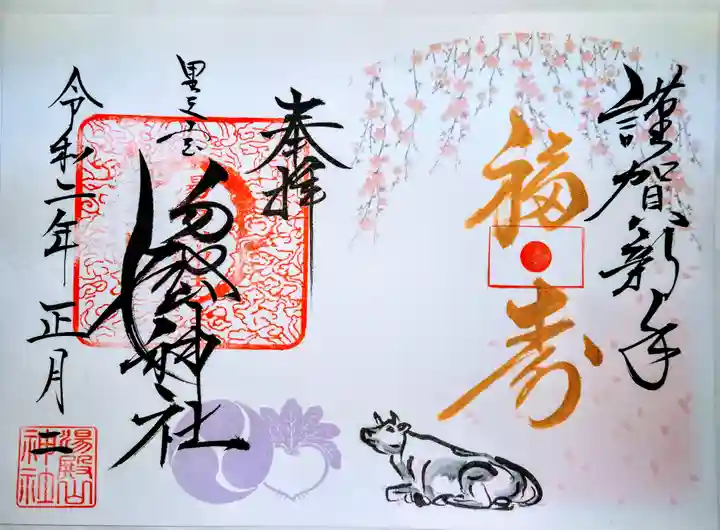 謹賀新年
福寿
奉拝
湯殿山神社
令和二年正月
湯殿山
神社